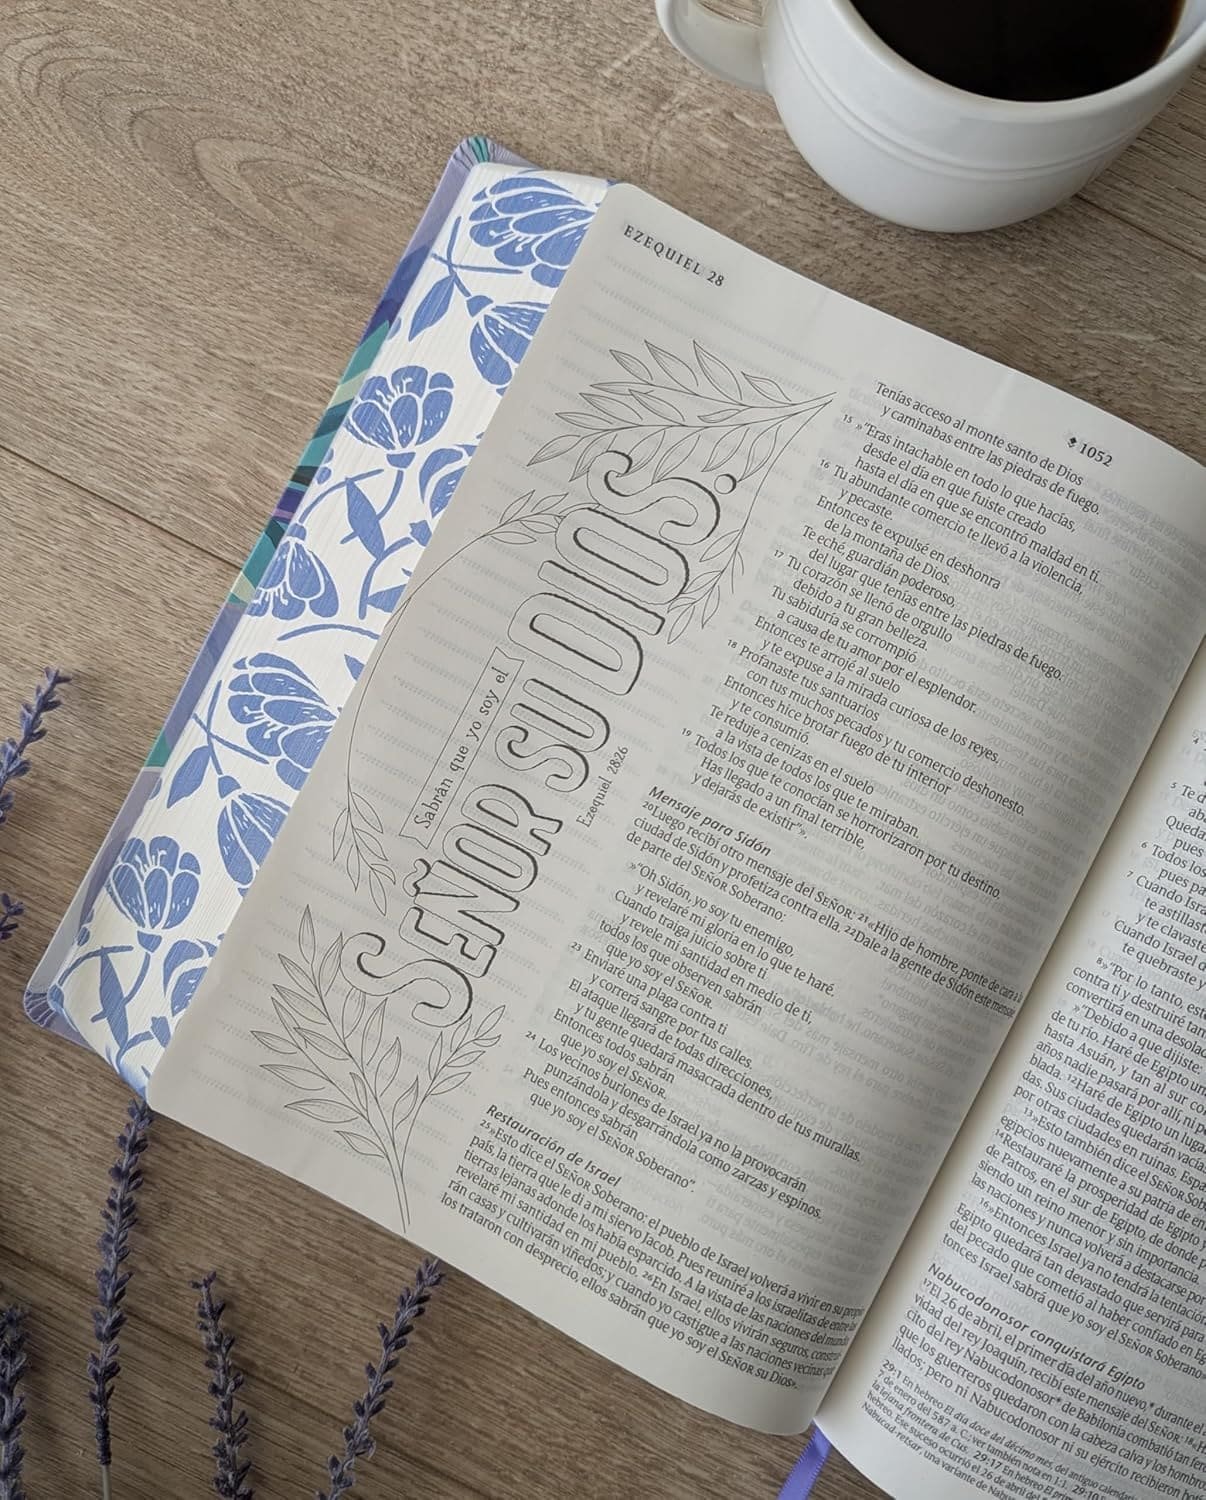 EZEQUIEL 28
1052
Sabrán que yo soy el
SEÑOR SU DIOS.
Ezequiel 28:26
Tenías acceso al monte santo de Dios
y caminabas entre las piedras de fuego.
15 »"Eras intachable en todo lo que hacías,
desde el día en que fuiste creado
hasta el día en que se encontró maldad en ti.
16 Tu abundante comercio te llevó a la violencia,
y pecaste.
Entonces te expulsé en deshonra
de la montaña de Dios.
Te eché guardián poderoso,
del lugar que tenías entre las piedras de fuego.
17 Tu corazón se llenó de orgullo
debido a tu gran belleza.
Tu sabiduría se corrompió
a causa de tu amor por el esplendor.
Entonces te arrojé al suelo
y te expuse a la mirada curiosa de los reyes.
18 Profanaste tus santuarios
con tus muchos pecados y tu comercio deshonesto.
Entonces hice brotar fuego de tu interior
y te consumió.
Te reduje a cenizas en el suelo
a la vista de todos los que te miraban.
19 Todos los que te conocían se horrorizaron por tu destino.
Has llegado a un final terrible,
y dejarás de existir"».
Mensaje para Sidón
20 Luego recibí otro mensaje del SEÑOR: 21 «Hijo de hombre, ponte de cara a la
ciudad de Sidón y profetiza contra ella. 22 Dale a la gente de Sidón este mensaje
de parte del SEÑOR Soberano:
»"Oh Sidón, yo soy tu enemigo,
y revelaré mi gloria en lo que te haré.
Cuando traiga juicio sobre ti
y revele mi santidad en medio de ti,
todos los que observen sabrán
que yo soy el SEÑOR.
23 Enviaré una plaga contra ti
y correrá sangre por tus calles.
El ataque llegará de todas direcciones,
y tu gente quedará masacrada dentro de tus murallas.
Entonces todos sabrán
que yo soy el SEÑOR.
24 Los vecinos burlones de Israel ya no la provocarán
punzándola y desgarrándola como zarzas y espinos.
Pues entonces sabrán
que yo soy el SEÑOR Soberano".
Restauración de Israel
25 »Esto dice el SEÑOR Soberano: el pueblo de Israel volverá a vivir en su propio
país, la tierra que le di a mi siervo Jacob. Pues reuniré a los israelitas de entre las
tierras lejanas adonde los había esparcido. A la vista de las naciones del mundo,
revelaré mi santidad en mi pueblo. 26 En Israel, ellos vivirán seguros, construi-
rán casas y cultivarán viñedos; y cuando yo castigue a las naciones vecinas que
los trataron con desprecio, ellos sabrán que yo soy el SEÑOR su Dios».
4
5 Te d
Queda
pues
6 Todos los
pues pa
7 Cuando Isra
te astillast
y te clavaste
Cuando Israel
te quebraste y
8 »"Por lo tanto, est
contra ti y destruiré tan
convertirá en una desola
»"Debido a que dijiste:
de tu río. Haré de Egipto un
hasta Asuán, y tan al sur co
años nadie pasará por allí, ni
blada. 12 Haré de Egipto un luga
das. Sus ciudades quedarán vacía
por otras ciudades en ruinas. Espa
13 »Esto también dice el SEÑOR Sob
egipcios nuevamente a su patria de en
14 Restauraré la prosperidad de Egipto y
de Patros, en el sur de Egipto, de donde
siendo un reino menor y sin importancia.
las naciones y nunca volverá a destacarse por
16 »Entonces Israel ya no tendrá la tentación
Egipto quedará tan devastado que servirá para
del pecado que cometió al haber confiado en Eg
tonces Israel sabrá que yo soy el SEÑOR Soberano
Nabucodonosor conquistará Egipto
17 El 26 de abril, el primer día del año nuevo,* durante el
vidad del rey Joaquín, recibí este mensaje del SEÑOR: 18 «H
cito del rey Nabucodonosor* de Babilonia combatió tan fer
que los guerreros quedaron con la cabeza calva y los hombro
llados; pero ni Nabucodonosor ni su ejército recibieron
29:1 En hebreo El día doce del décimo mes, del antiguo calendar
7 de enero del 587 a. C.; ver también nota en 1:1. 29:10
la lejana frontera de Cus. 29:17 En hebreo El prim
hebreo. Ese suceso ocurrió el 26 de abril del
Nabucad-retsar, una variante de Nabu